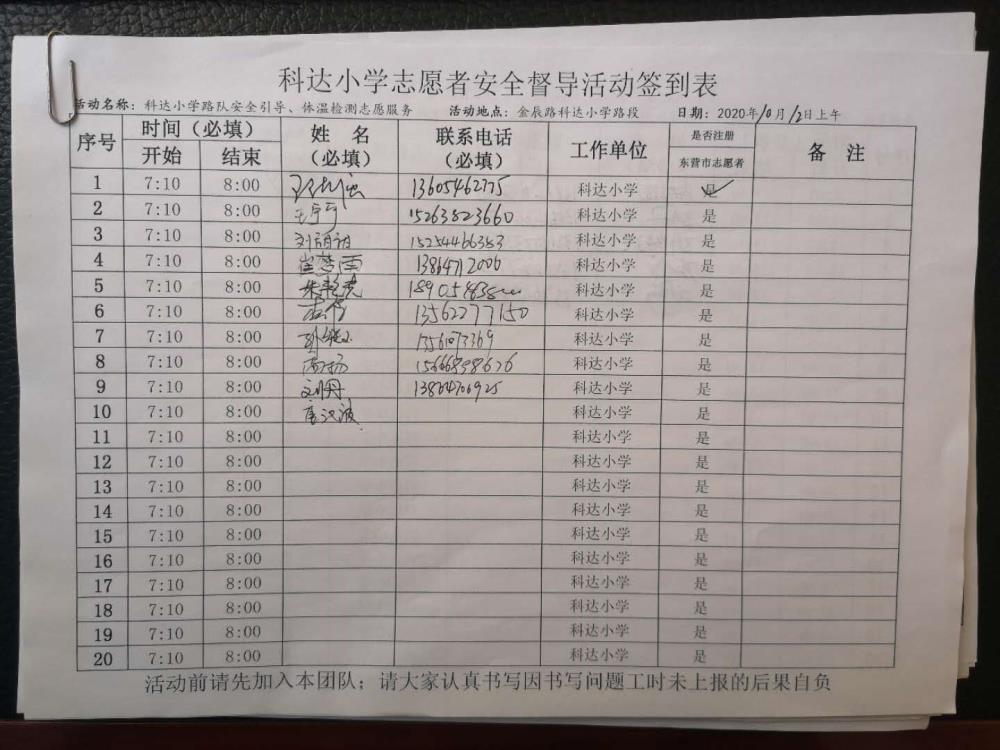 科达小学志愿者安全督导活动签到表
活动名称：科达小学路队安全引导、体温检测志愿服务 活动地点：金辰路科达小学路段 日期：2020年10月12日上午
序号 时间（必填） 姓 名（必填） 联系电话（必填） 工作单位 是否注册东营市志愿者 备 注
开始 结束
1 7:10 8:00 13605462775 科达小学 是
2 7:10 8:00 王宁宁 15263823660 科达小学 是
3 7:10 8:00 15254466353 科达小学 是
4 7:10 8:00 崔梦雨 13864712006 科达小学 是
5 7:10 8:00 科达小学 是
6 7:10 8:00 13562277150 科达小学 是
7 7:10 8:00 科达小学 是
8 7:10 8:00 15666898626 科达小学 是
9 7:10 8:00 刘丹 13864706925 科达小学 是
10 7:10 8:00 科达小学 是
11 7:10 8:00 科达小学 是
12 7:10 8:00 科达小学 是
13 7:10 8:00 科达小学 是
14 7:10 8:00 科达小学 是
15 7:10 8:00 科达小学 是
16 7:10 8:00 科达小学 是
17 7:10 8:00 科达小学 是
18 7:10 8:00 科达小学 是
19 7:10 8:00 科达小学 是
20 7:10 8:00 科达小学 是
活动前请先加入本团队；请大家认真书写因书写问题工时未上报的后果自负